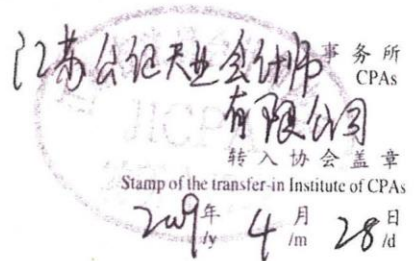 江苏公证天业会计师事务所
CPAs
有限公司
转入协会盖章
Stamp of the transfer-in Institute of CPAs
2009年 4月 28日
/y /m /d